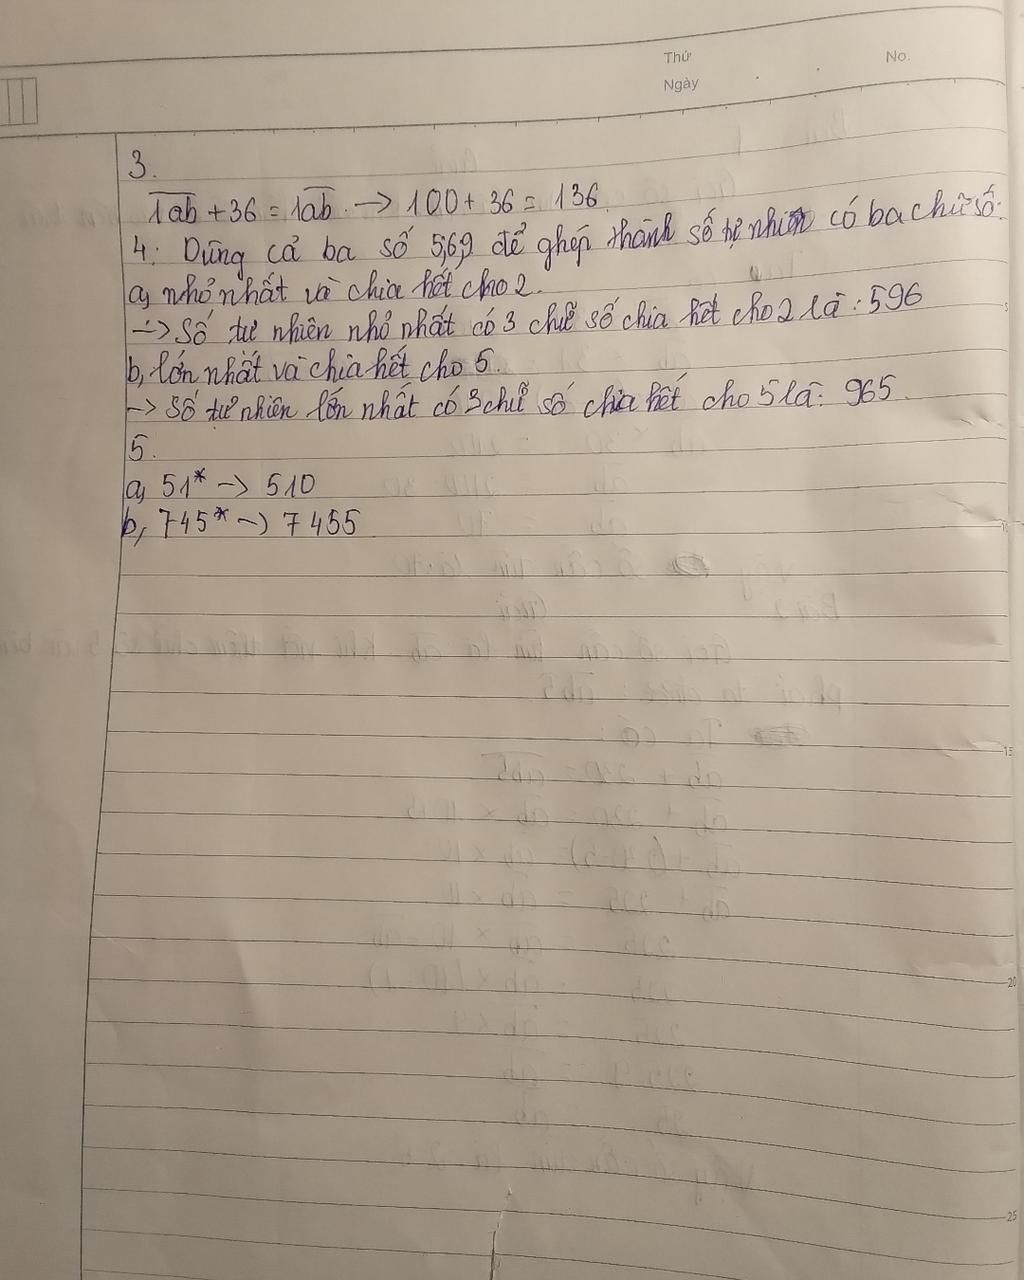 Thứ
No.
Ngày
3.
1ab + 36 = 1ab. -> 100 + 36 = 136.
4: Dùng cả ba số 5,6,9 để ghép thành số tự nhiên có ba chữ số:
a, nhỏ nhất và chia hết cho 2.
-> Số tự nhiên nhỏ nhất có 3 chữ số chia hết cho 2 là: 596
b, lớn nhất và chia hết cho 5.
-> Số tự nhiên lớn nhất có 3 chữ số chia hết cho 5 là: 965.
5.
a, 51* -> 510
b, 745* -> 7455
15
20
25